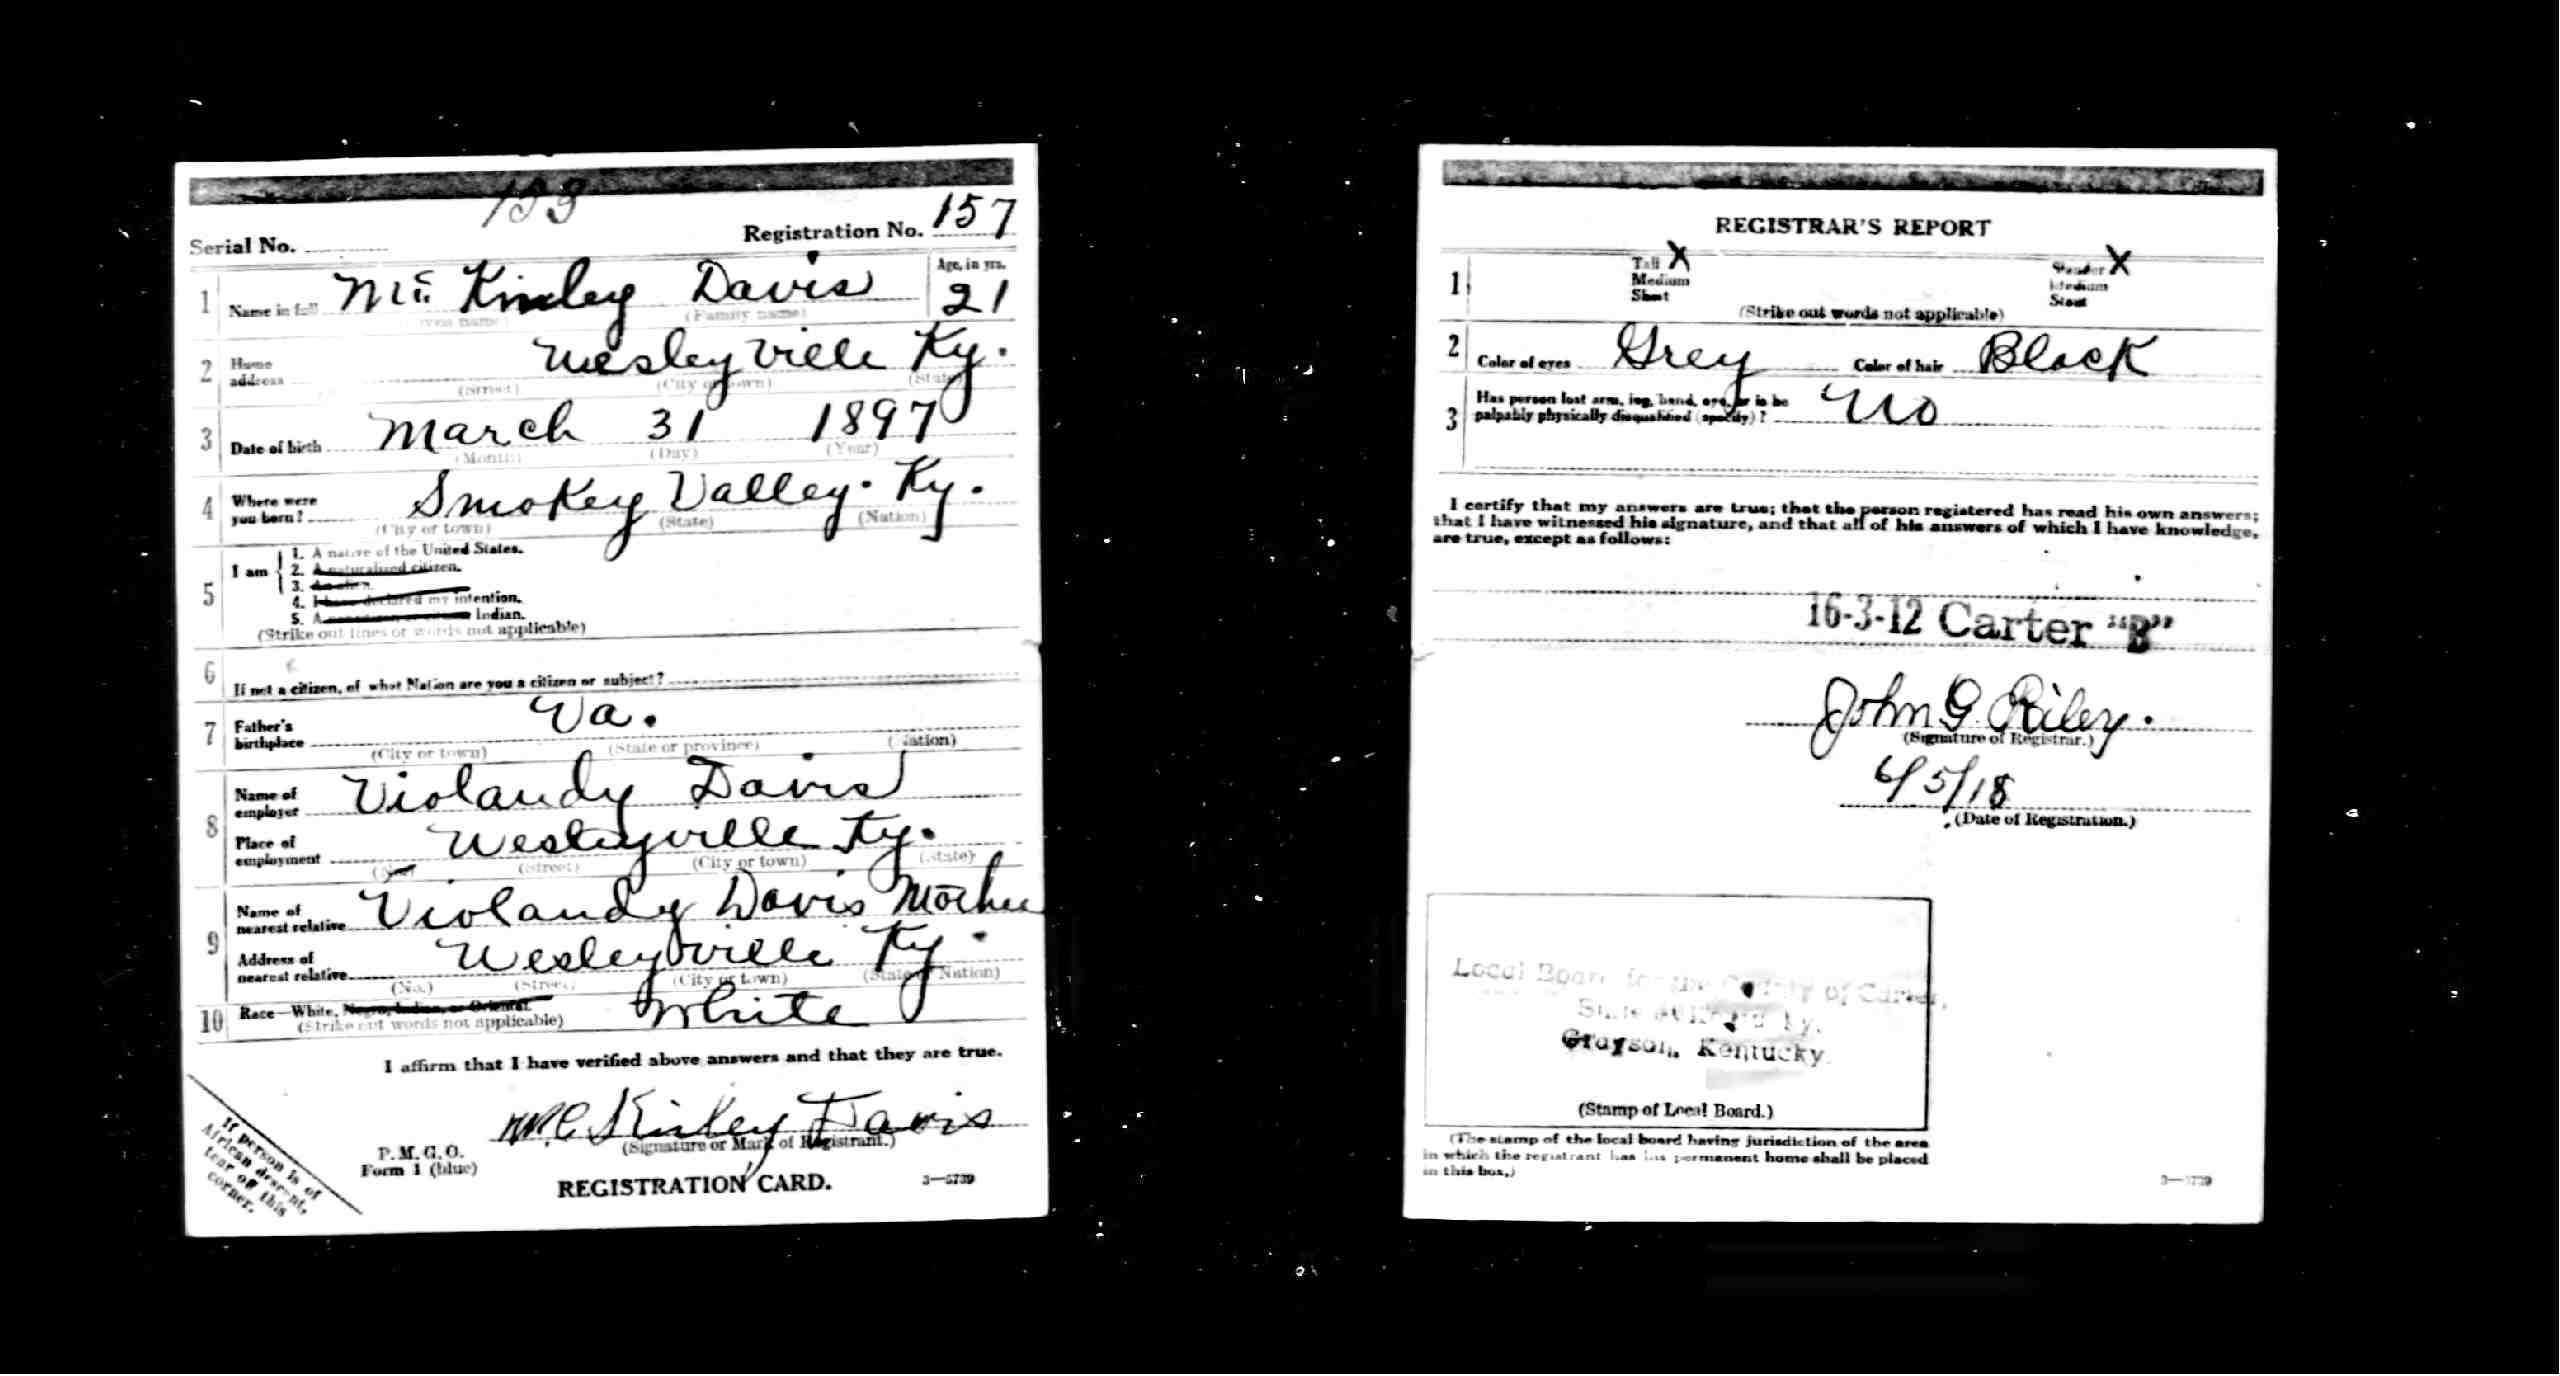 133
Serial No. Registration No. 157
1 Name in full Mc Kinley Davis Age, in yrs. 21
(Given name) (Family name)
2 Home address Wesleyville Ky.
(Street) (City or town) (State)
3 Date of birth March 31 1897
(Month) (Day) (Year)
4 Where were you born? Smokey Valley. Ky.
(City or town) (State) (Nation)
5 I am
1. A native of the United States.
2. A naturalized citizen.
3. An alien.
4. I have declared my intention.
5. A Indian.
(Strike out lines or words not applicable)
6 If not a citizen, of what Nation are you a citizen or subject?
7 Father's birthplace Va.
(City or town) (State or province) (Nation)
8 Name of employer Violandy Davis
Place of employment Wesleyville Ky.
(No.) (Street) (City or town) (State)
9 Name of nearest relative Violandy Davis Mother
Address of nearest relative Wesleyville Ky.
(No.) (Street) (City or town) (State or Nation)
10 Race—White, Negro, Indian, or Oriental. White
(Strike out words not applicable)
I affirm that I have verified above answers and that they are true.
McKinley Davis
(Signature or Mark of Registrant.)
P. M. G. O.
Form 1 (blue)
REGISTRATION CARD.
3—5739
If person is of
African descent,
tear off this
corner.
REGISTRAR'S REPORT
1 Tall X Slender X
Medium Medium
Short Stout
(Strike out words not applicable)
2 Color of eyes Grey Color of hair Black
3 Has person lost arm, leg, hand, eye, or is he
palpably physically disqualified (specify)? No
I certify that my answers are true; that the person registered has read his own answers;
that I have witnessed his signature, and that all of his answers of which I have knowledge,
are true, except as follows:
16-3-12 Carter "B"
John G. Riley.
(Signature of Registrar.)
6/5/18
(Date of Registration.)
Local Board for the County of Carter,
State of Ky.
Grayson, Kentucky.
(Stamp of Local Board.)
(The stamp of the local board having jurisdiction of the area
in which the registrant has his permanent home shall be placed
in this box.)
3—5739